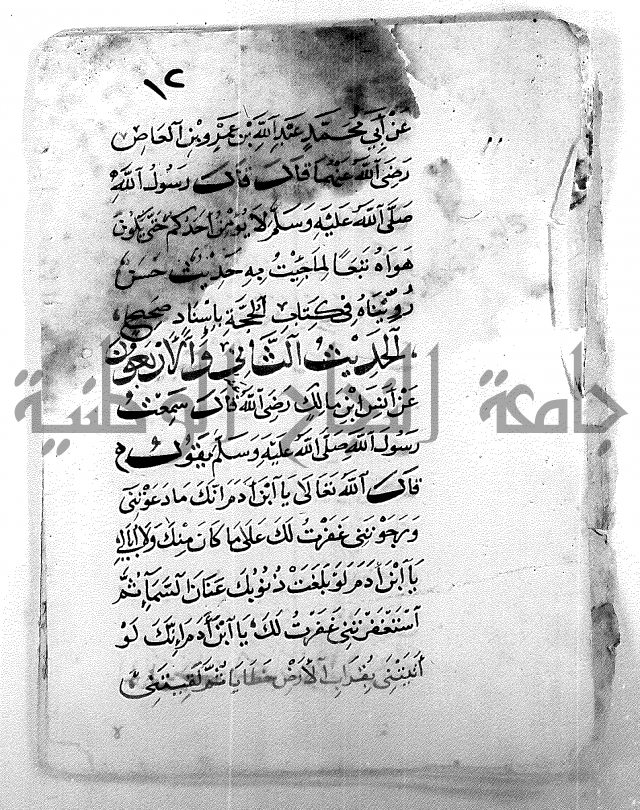 ١٢
عَنْ أَبِي مُحَمَّدٍ عَبْدِ اللَّهِ بْنِ عَمْرِو بْنِ الْعَاصِ
رَضِيَ اللَّهُ عَنْهُمَا قَالَ قَالَ رَسُولُ اللَّهِ
صَلَّى اللَّهُ عَلَيْهِ وَسَلَّمَ لَا يُؤْمِنُ أَحَدُكُمْ حَتَّى يَكُونَ
هَوَاهُ تَبَعًا لِمَا جِئْتُ بِهِ حَدِيثٌ حَسَنٌ
رُوِّينَاهُ فِي كِتَابِ الْحُجَّةِ بِإِسْنَادٍ صَحِيحٍ
الْحَدِيثُ الثَّانِي وَالْأَرْبَعُونَ
عَنْ أَنَسِ ابْنِ مَالِكٍ رَضِيَ اللَّهُ قَالَ سَمِعْتُ
رَسُولَ اللَّهِ صَلَّى اللَّهُ عَلَيْهِ وَسَلَّمَ يَقُولُ
قَالَ اللَّهُ تَعَالَى يَا ابْنَ آدَمَ إِنَّكَ مَا دَعَوْتَنِي
وَرَجَوْتَنِي غَفَرْتُ لَكَ عَلَى مَا كَانَ مِنْكَ وَلَا أُبَالِي
يَا ابْنَ آدَمَ لَوْ بَلَغَتْ ذُنُوبُكَ عَنَانَ السَّمَاءِ ثُمَّ
اسْتَغْفَرْتَنِي غَفَرْتُ لَكَ يَا ابْنَ آدَمَ إِنَّكَ لَوْ
أَتَيْتَنِي بِقُرَابِ الْأَرْضِ خَطَايَا ثُمَّ لَقِيتَنِي
جامعة النجاح الوطنية